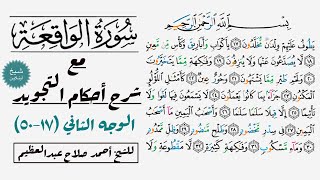 سُورَةُ الوَاقِعَة
مع
شرح أحكام التجويد
الوجه الثاني (١٧-٥٠)
للشيخ أحمد صلاح عبدالعظيم
بِسْمِ اللَّهِ الرَّحْمَٰنِ الرَّحِيمِ
يَطُوفُ عَلَيْهِمْ وِلْدَانٌ مُّخَلَّدُونَ ١٧ بِأَكْوَابٍ وَأَبَارِيقَ وَكَأْسٍ مِّن مَّعِينٍ
١٨ لَّا يُصَدَّعُونَ عَنْهَا وَلَا يُنزِفُونَ ١٩ وَفَاكِهَةٍ مِّمَّا يَتَخَيَّرُونَ
٢٠ وَلَحْمِ طَيْرٍ مِّمَّا يَشْتَهُونَ ٢١ وَحُورٌ عِينٌ ٢٢ كَأَمْثَالِ اللُّؤْلُؤِ
الْمَكْنُونِ ٢٣ جَزَاءً بِمَا كَانُوا يَعْمَلُونَ ٢٤ لَا يَسْمَعُونَ فِيهَا لَغْوًا وَلَا
تَأْثِيمًا ٢٥ إِلَّا قِيلًا سَلَامًا سَلَامًا ٢٦ وَأَصْحَابُ الْيَمِينِ مَا أَصْحَابُ
الْيَمِينِ ٢٧ فِي سِدْرٍ مَّخْضُودٍ ٢٨ وَطَلْحٍ مَّنضُودٍ ٢٩ وَظِلٍّ مَّمْدُودٍ
٣٠ وَمَاءٍ مَّسْكُوبٍ ٣١ وَفَاكِهَةٍ كَثِيرَةٍ ٣٢ لَّا مَقْطُوعَةٍ وَلَا